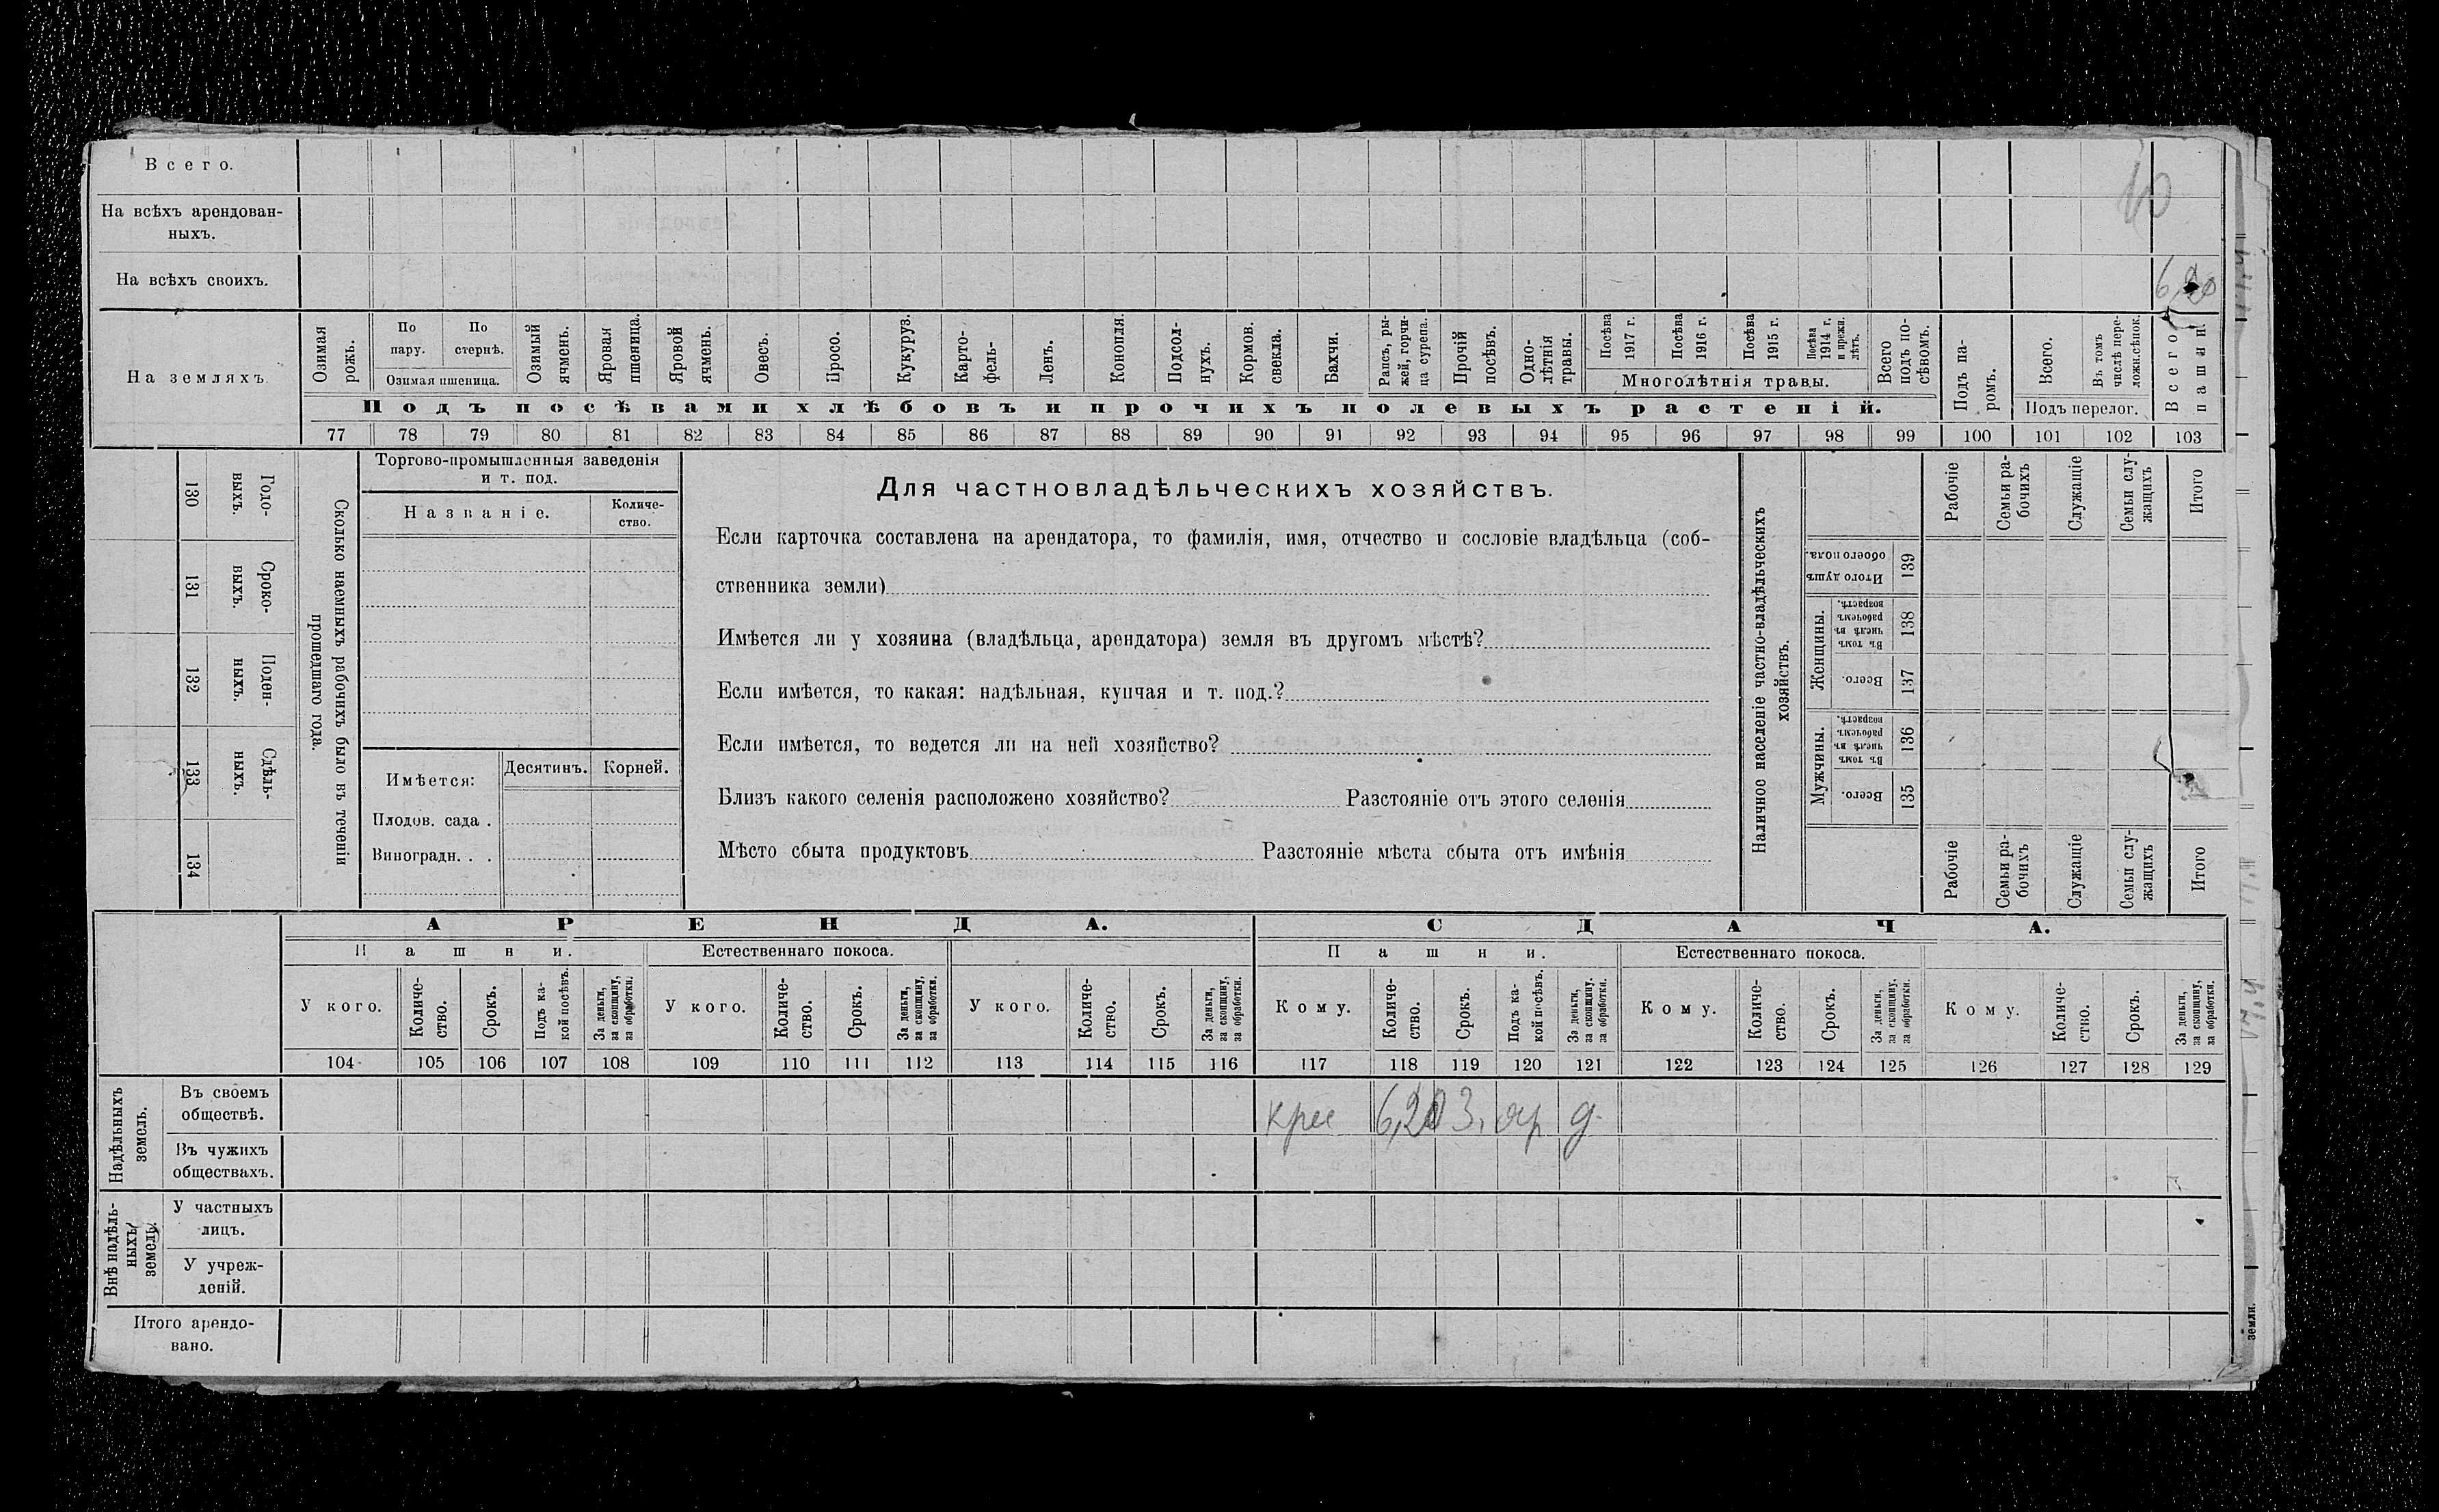 Всего.
10
На всѣхъ арендован-
ныхъ.
На всѣхъ своихъ.
6,20
На земляхъ.
Озимая рожь.
По пару.
По стернѣ.
Озимая пшеница.
Озимый ячмень.
Яровая пшеница.
Яровой ячмень.
Овесъ.
Просо.
Кукуруз.
Карто-
фель-
Ленъ.
Конопля.
Подсол-
нухъ.
Кормов. свекла.
Бахчи.
Рапсъ, ры-
жей, горчи-
ца сурепа.
Прочій посѣвъ.
Одно-
лѣтнія травы.
Посѣва 1917 г.
Посѣва 1916 г.
Посѣва 1915 г.
Посѣва 1914 г. и прежн. лѣтъ.
Многолѣтнія травы.
Всего подъ по-
сѣвомъ.
Подъ посѣвами хлѣбовъ и прочихъ полевыхъ растеній.
Подъ па-
ромъ.
Всего.
Въ томъ числѣ пере-
ложн.сѣнок.
Подъ перелог.
Всего пашни.
77 78 79 80 81 82 83 84 85 86 87 88 89 90 91 92 93 94 95 96 97 98 99 100 101 102 103
Годо-
выхъ.
130
Сроко-
выхъ.
131
Поден-
ныхъ.
132
Сдѣль-
ныхъ.
133
134
Сколько наемныхъ рабочихъ было въ теченіи
прошедшаго года.
Торгово-промышленныя заведенія
и т. под.
Названіе.
Количе-
ство.
Имѣется:
Десятинъ.
Корней.
Плодов. сада .
Виноградн. . .
Для частновладѣльческихъ хозяйствъ.
Если карточка составлена на арендатора, то фамилія, имя, отчество и сословіе владѣльца (соб-
ственника земли)
Имѣется ли у хозяина (владѣльца, арендатора) земля въ другомъ мѣстѣ?
Если имѣется, то какая: надѣльная, купчая и т. под.?
Если имѣется, то ведется ли на ней хозяйство?
Близъ какого селенія расположено хозяйство? Разстояніе отъ этого селенія
Мѣсто сбыта продуктовъ Разстояніе мѣста сбыта отъ имѣнія
Наличное населеніе частно-владѣльческихъ
хозяйствъ.
Рабочіе
Семьи ра-
бочихъ
Служащіе
Семьи слу-
жащихъ
Итого
Итого душъ обоего пола.
139
Женщины.
Въ томъ числѣ въ рабочемъ возрастѣ.
138
Всего.
137
Мужчины.
Въ томъ числѣ въ рабочемъ возрастѣ.
136
Всего.
135
Рабочіе
Семьи ра-
бочихъ
Служащіе
Семьи слу-
жащихъ
Итого
АРЕНДА.
СДАЧА.
Пашни.
Естественнаго покоса.
Пашни.
Естественнаго покоса.
У кого.
Количе-
ство.
Срокъ.
Подъ ка-
кой посѣвъ.
За деньги, за скопщину, за обработки.
У кого.
Количе-
ство.
Срокъ.
За деньги, за скопщину, за обработки.
У кого.
Количе-
ство.
Срокъ.
За деньги, за скопщину, за обработки.
Кому.
Количе-
ство.
Срокъ.
Подъ ка-
кой посѣвъ.
За деньги, за скопщину, за обработки.
Кому.
Количе-
ство.
Срокъ.
За деньги, за скопщину, за обработки.
Кому.
Количе-
ство.
Срокъ.
За деньги, за скопщину, за обработки.
104 105 106 107 108 109 110 111 112 113 114 115 116 117 118 119 120 121 122 123 124 125 126 127 128 129
Надѣльныхъ
земель.
Въ своемъ
обществѣ.
6,20 3. яр д.
Въ чужихъ
обществахъ.
Внѣ надѣль-
ныхъ
земель.
У частныхъ
лицъ.
У учреж-
деній.
Итого арендо-
вано.
земли.